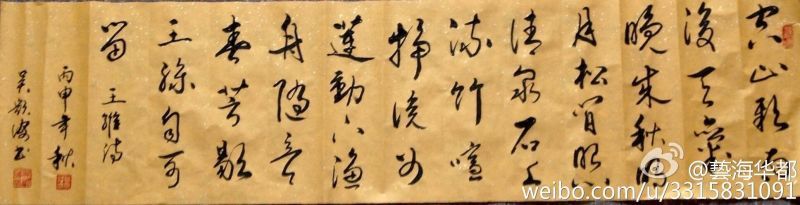 空山新雨
後天氣
晚來秋明
月松間照
清泉石上
流竹喧
歸浣女
蓮動下漁
舟隨意
春芳歇
王孫自可
留 王維詩
丙申年秋
吴海书
@藝海华都
weibo.com/u/3315831091